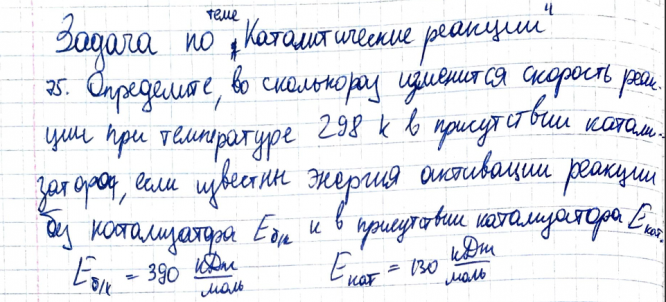 Задача по теме „Каталитические реакции"
75. Определите, во сколько раз изменится скорость реак-
ции при температуре 298 К в присутствии катали-
затора, если известны энергия активации реакции
без катализатора Eб/к и в присутствии катализатора Eкат.
Eб/к = 390 кДж/моль Eкат = 130 кДж/моль